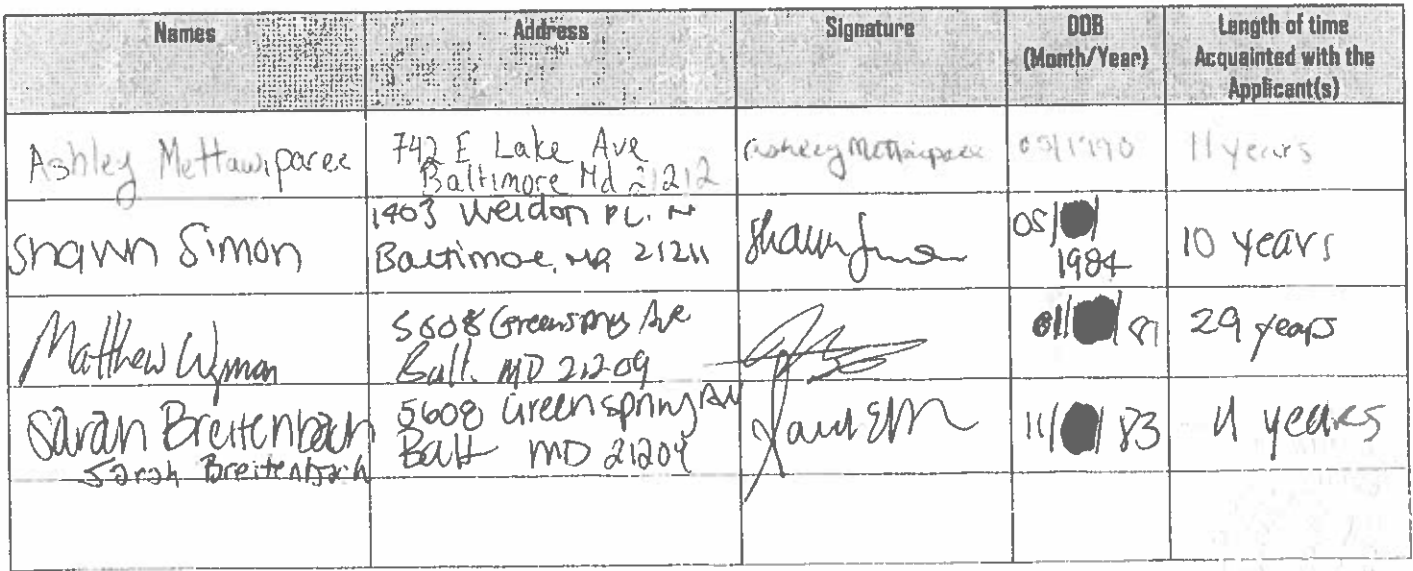 Names
Address
Signature
DOB
(Month/Year)
Length of time
Acquainted with the
Applicant(s)
Ashley Mettawiparee
742 E Lake Ave
Baltimore Md 21212
Ashley Mettawiparee
05/1990
11 years
Shawn Simon
1403 Weldon PL. N
Baltimore, MD 21211
Shawn
05/
1984
10 years
Matthew Wyman
5608 Greenspring Ave
Balt. MD 21209
01/ 81
29 years
Sarah Breitenbach
Sarah Breitenbach
5608 Greenspring Av
Balt MD 21209
11/ 83
11 years